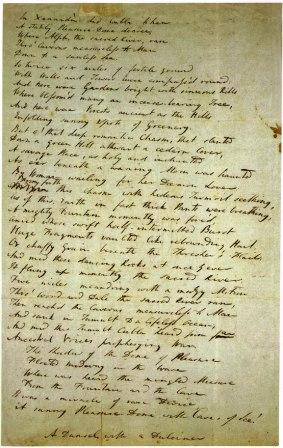 In Xannadù did Cubla Khan
A stately Pleasure Dome decree;
Where Alph, the sacred River, ran
Thro' Caverns measureless to Man
Down to a sunless Sea.
So twice six miles of fertile ground
With Walls and Towers were compass'd round:
And here were Gardens bright with sinuous Rills
Where blossom'd many an incense-bearing Tree,
And here were Forests ancient as the Hills
Enfolding sunny Spots of Greenery.
But o! that deep romantic Chasm, that slanted
Down a green Hill athwart a cedarn Cover,
A savage Place, as holy and inchanted
As e'er beneath a waning Moon was haunted
By Woman wailing for her Dæmon Lover:
From forth this Chasm with hideous Turmoil seething,
As if this Earth in fast thick Pants were breathing,
A mighty Fountain momently was forc'd,
Amid whose swift half-intermitted Burst
Huge Fragments vaulted like rebounding Hail,
Or chaffy Grain beneath the Thresher's Flail.
And mid these dancing Rocks at once & ever
It flung up momently the sacred River.
Five miles meandring with a mazy Motion
Thro' Wood and Dale the sacred River ran,
Then reach'd the Caverns measureless to Man
And sank in Tumult to a lifeless Ocean;
And mid this Tumult Cubla heard from far
Ancestral Voices prophesying War.
The Shadow of the Dome of Pleasure
Floated midway on the Wave
Where was heard the mingled Measure
From the Fountain and the Cave.
It was a miracle of rare Device,
A sunny Pleasure-Dome with Caves of Ice!
A Damsel with a Dulcimer